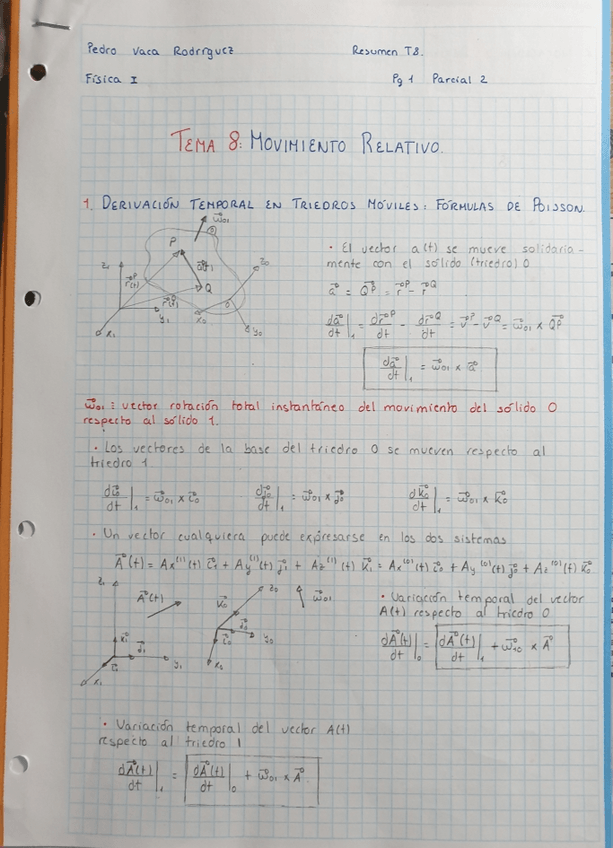 Pedro Vaca Rodrrguez Resumen T8.
Física I Pg 1 Parcial 2
TEMA 8: MOVIMIENTO RELATIVO.
1. DERIVACIÓN TEMPORAL EN TRIEDROS MÓVILES: FÓRMULAS DE POISSON.
· El vector a(t) se mueve solidaria-
mente con el sólido (triedro) 0
a⃗ = QP⃗ = r⃗ᴾ - r⃗Q
da⃗/dt|₁ = dr⃗ᴾ/dt - dr⃗Q/dt = v⃗ᴾ - v⃗Q = ω⃗₀₁ × QP⃗
da⃗/dt|₁ = ω⃗₀₁ × a⃗
ω⃗₀₁ ≡ vector rotación total instantáneo del movimiento del sólido 0
respecto al sólido 1.
· Los vectores de la base del triedro 0 se mueven respecto al
triedro 1
di⃗₀/dt|₁ = ω⃗₀₁ × i⃗₀ dj⃗₀/dt|₁ = ω⃗₀₁ × j⃗₀ dk⃗₀/dt|₁ = ω⃗₀₁ × k⃗₀
· Un vector cualquiera puede expresarse en los dos sistemas
A⃗(t) = Ax⁽¹⁾(t) i⃗₁ + Ay⁽¹⁾(t) j⃗₁ + Az⁽¹⁾(t) k⃗₁ = Ax⁽⁰⁾(t) i⃗₀ + Ay⁽⁰⁾(t) j⃗₀ + Az⁽⁰⁾(t) k⃗₀
· Variación temporal del vector
A(t) respecto al triedro 0
dA⃗(t)/dt|₀ = dA⃗(t)/dt|₁ + ω⃗₁₀ × A⃗
· Variación temporal del vector A(t)
respecto al triedro 1
dA⃗(t)/dt|₁ = dA⃗(t)/dt|₀ + ω⃗₀₁ × A⃗